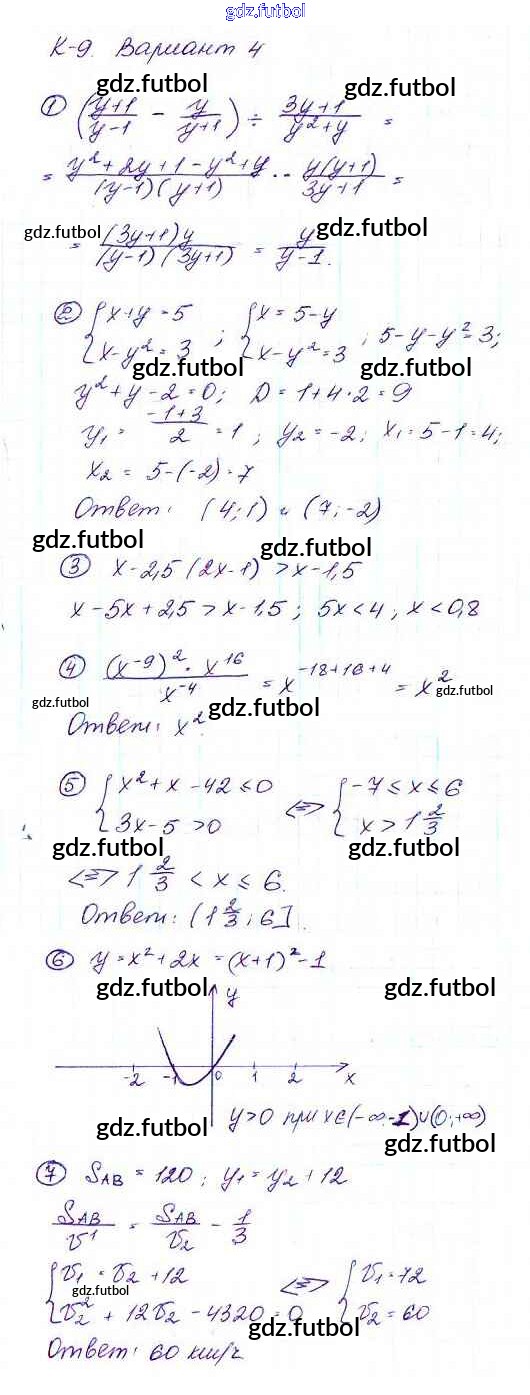 gdz.futbol
К-9. Вариант 4
gdz.futbol gdz.futbol
① ((y+1)/(y-1) - y/(y+1)) ÷ (3y+1)/(y²+y) =
= (y²+2y+1-y²+y)/((y-1)(y+1)) · (y(y+1))/(3y+1) =
gdz.futbol gdz.futbol
= ((3y+1)y)/((y-1)(3y+1)) = y/(y-1).
② {x+y=5 {x=5-y
{x-y²=3 ; {x-y²=3 ; 5-y-y²=3;
gdz.futbol gdz.futbol
y²+y-2=0; D=1+4·2=9
y₁ = (-1+3)/2 = 1; y₂=-2; x₁=5-1=4;
x₂ = 5-(-2)=7
Ответ: (4;1) и (7;-2)
gdz.futbol gdz.futbol
③ x-2,5(2x-1)>x-1,5
x-5x+2,5>x-1,5; 5x<4, x<0,8
④ ((x⁻⁹)²·x¹⁶)/x⁻⁴ = x⁻¹⁸⁺¹⁶⁺⁴ = x²
gdz.futbol gdz.futbol gdz.futbol
Ответ: x².
⑤ {x²+x-42≤0 <=> {-7≤x≤6
{3x-5>0 {x>1 2/3
gdz.futbol gdz.futbol
<=> 1 2/3 < x ≤ 6.
Ответ: (1 2/3; 6].
⑥ y=x²+2x=(x+1)²-1
gdz.futbol y gdz.futbol
-2 -1 0 1 2 x
y>0 при x∈(-∞;-1)∪(0;+∞)
gdz.futbol gdz.futbol
⑦ S_AB = 120; y₁=y₂+12
S_AB/v¹ = S_AB/v₂ - 1/3
{v₁=v₂+12 <=> {v₁=72
gdz.futbol
{v₂²+12v₂-4320=0 {v₂=60
gdz.futbol
Ответ: 60 км/ч